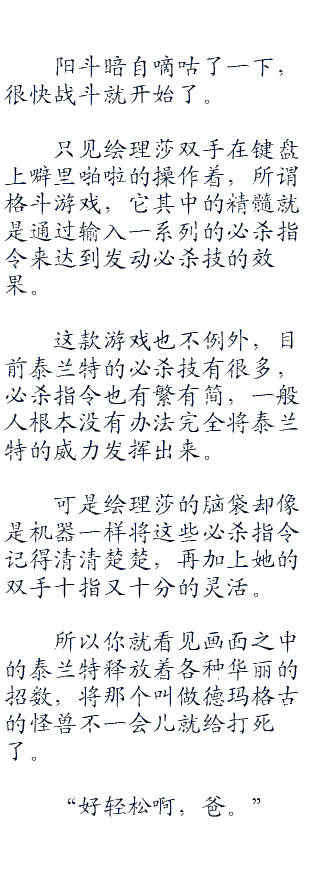 阳斗暗自嘀咕了一下，
很快战斗就开始了。
只见绘理莎双手在键盘
上噼里啪啦的操作着，所谓
格斗游戏，它其中的精髓就
是通过输入一系列的必杀指
令来达到发动必杀技的效
果。
这款游戏也不例外，目
前泰兰特的必杀技有很多，
必杀指令也有繁有简，一般
人根本没有办法完全将泰兰
特的威力发挥出来。
可是绘理莎的脑袋却像
是机器一样将这些必杀指令
记得清清楚楚，再加上她的
双手十指又十分的灵活。
所以你就看见画面之中
的泰兰特释放着各种华丽的
招数，将那个叫做德玛格古
的怪兽不一会儿就给打死
了。
“好轻松啊，爸。”